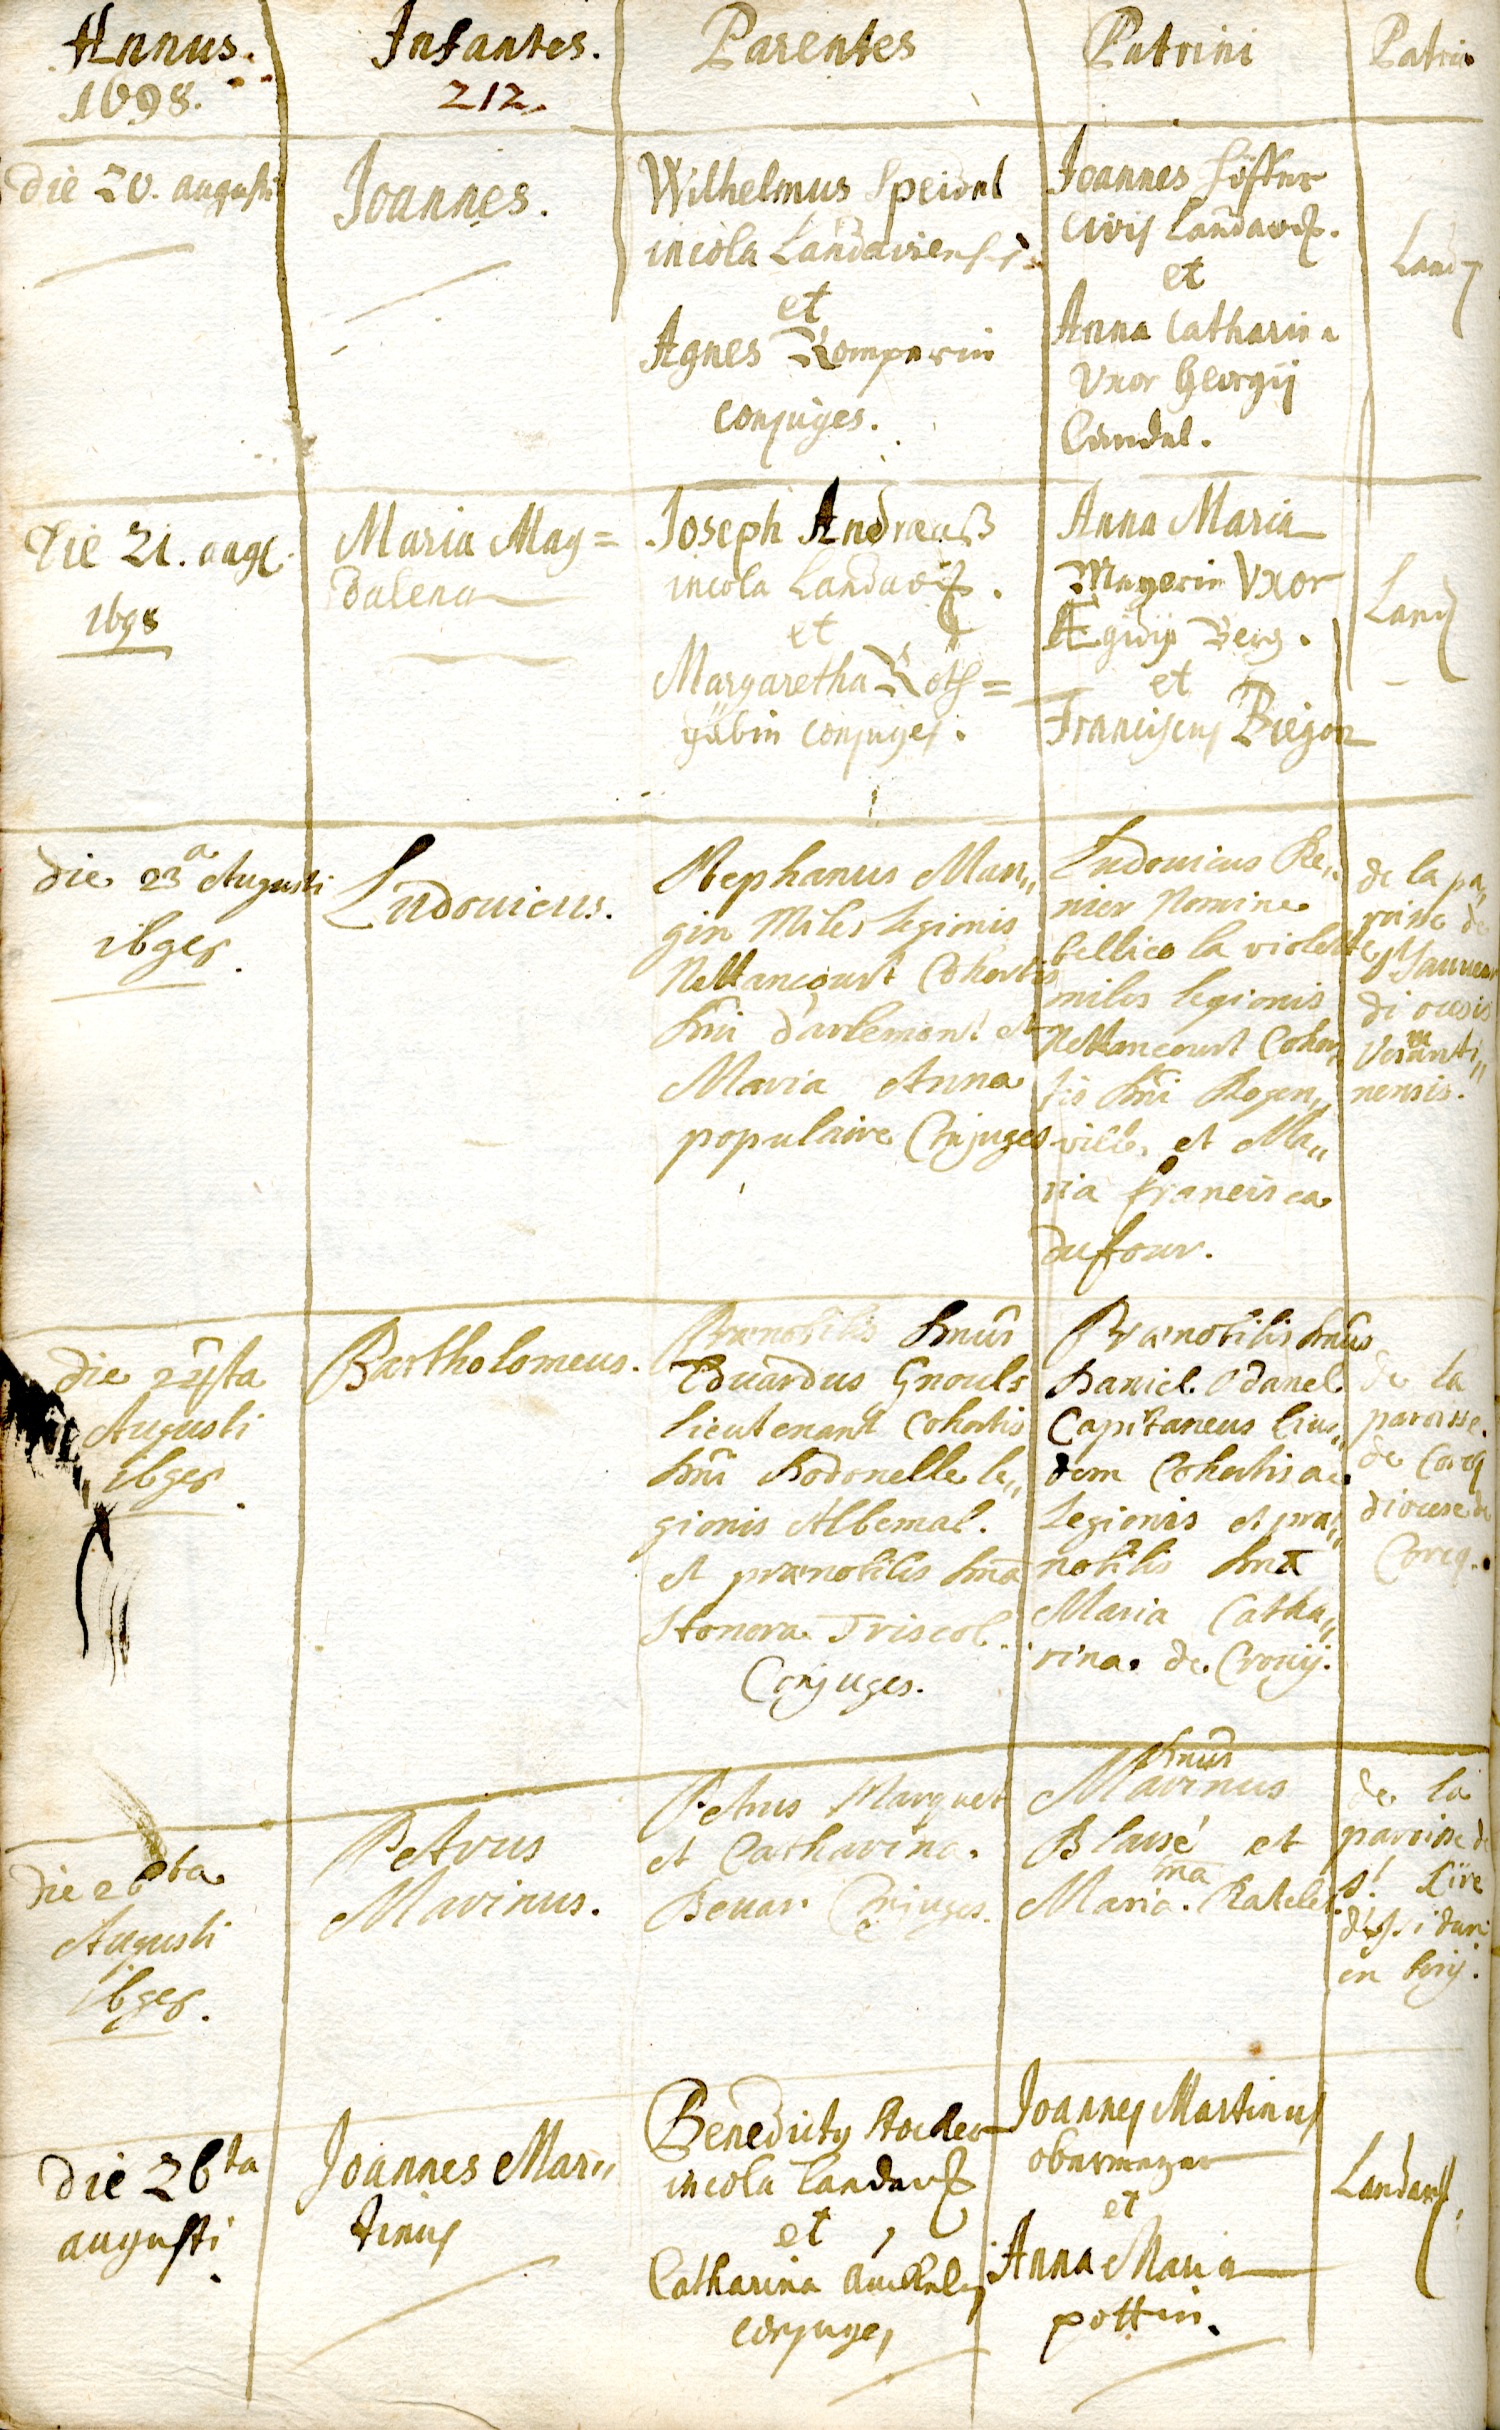 Annus.
1698.
Infantes.
212.
Parentes
Patrini
Patri
die 20. augusti
Joannes.
Wilhelmus Speidel
incola Landaviensis
et
Agnes
conjuges.
Joannes
civis Landavis.
et
Anna Catharina
Uxor Georgij
Land
Die 21. aug.
1698
Maria Mag=
dalena
Joseph Andreaß
incola Landavis.
et
Margaretha Roth=
gäbin conjuges.
Anna Maria
Mayerin Uxor
Ægidij Berg.
et
Franciscus Biegon
Land
die 23a Augusti
1698
Ludovicus.
Stephanus Man„
gin Miles legionis
Nettancourt Cohortis
Dni d'arlemont et
Maria Anna
populaire Conjuges
Ludovicus Re„
nier Nomine
bellico la violette
miles legionis
Nettancourt Cohor„
tis Dni Rogen„
ville et Ma„
ria francisca
dufour.
de la pa„
roisse de
diocesis
nensis.
die 24ta
Augusti
1698
Bartholomeus.
Prænobilis Dnus
Eduardus Gnouls
lieutenant Cohortis
Dni Hodonelle le„
gionis Albemal.
et prænobilis Dna
Honora Triscol.
Conjuges.
Prænobilis Dnus
Daniel Odanel
Capitaneus Eius„
dem Cohortis ac
Legionis et præ„
nobilis Dna
Maria Catha„
rina de Crouij.
de la
paroisse
de Corcq
diocese de
Corcq.
die 26ta
Augusti
1698.
Petrus
Marinus.
Petrus Marquet
et Catharina
Conjuges.
Dnus
Marinus
Blaisé et
Maria
de la
paroisse de
St
en
die 26ta
augusti
Joannes Mar„
tinus
Benedictus Stocker
incola Landavis
et
Catharina
conjuges
Joannes Martinus
obermeyer
et
Anna Maria
pottin.
Landavis